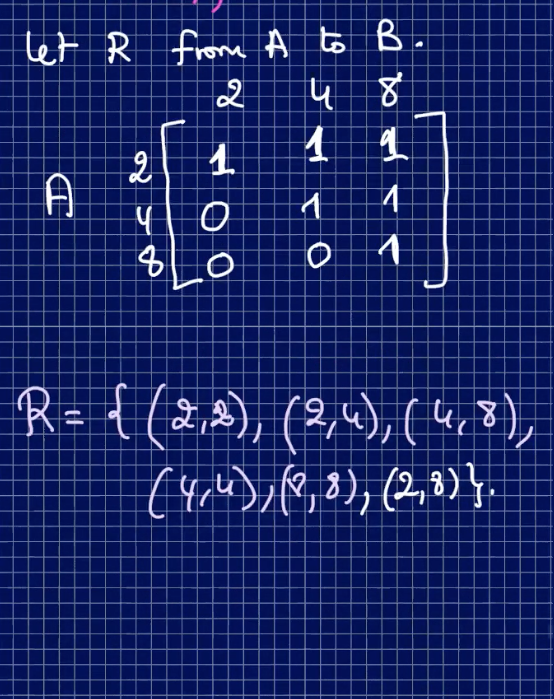 Let R from A to B.
2 4 8
2 1 1 1
A 4 0 1 1
8 0 0 1
R = { (2,2), (2,4), (4,8),
(4,4), (8,8), (2,8) }.